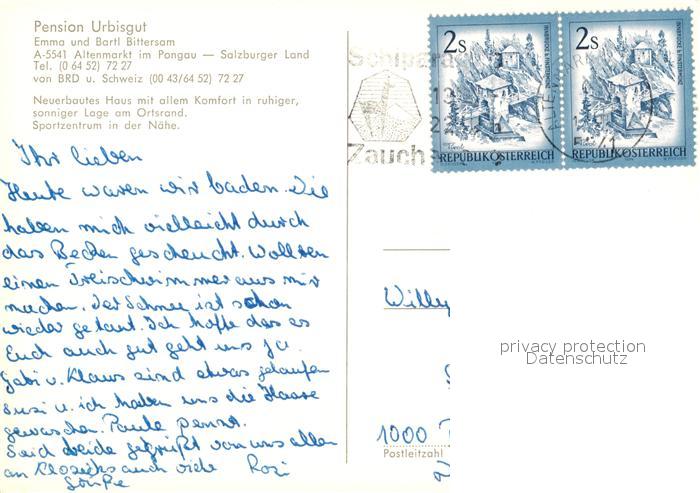 Pension Urbisgut
Emma und Bartl Bittersam
A-5541 Altenmarkt im Pongau — Salzburger Land
Tel. (0 64 52) 72 27
von BRD u. Schweiz (00 43/64 52) 72 27
Neuerbautes Haus mit allem Komfort in ruhiger,
sonniger Lage am Ortsrand.
Sportzentrum in der Nähe.
Ihr lieben
Heute waren wir baden. Die
haben mich vielleicht durch
das Becken gescheucht. Wollten
einen Freischwimmer aus mir
machen. Der Schnee ist schon
wieder getaut. Ich hoffe das es
Euch auch gut geht uns ja.
Gabi u. Klaus sind etwas gelaufen
Susi u. ich haben uns die Haare
gewaschen. Paule pennt.
Seid beide gegrüßt von uns allen
an auch viele Rosi
Grüße
2s
2s
REPUBLIK ÖSTERREICH
REPUBLIK ÖSTERREICH
Zauch
Willy
privacy protection
Datenschutz
1000
Postleitzahl